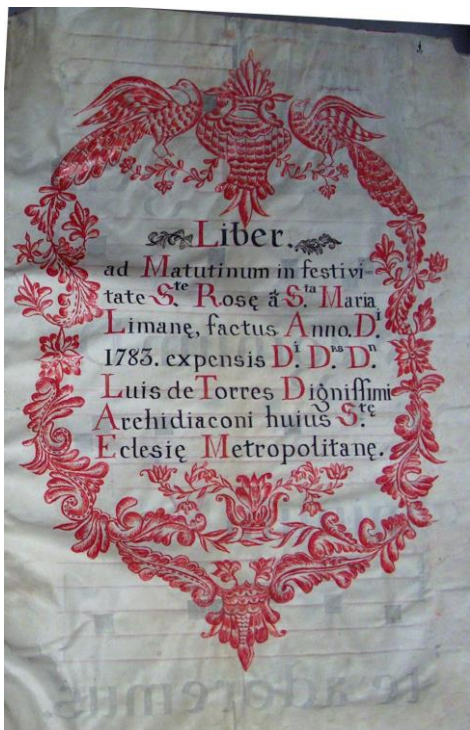 Liber.
ad Matutinum in festivi-
tate S.te Rosę á S.ta Maria
Limanę, factus Anno. D.i
1783. expensis D.i D.rs D.n
Luis de Torres Digniſſimi
Archidiaconi huius S.tę
Eclesię Metropolitanę.
te adoremus.